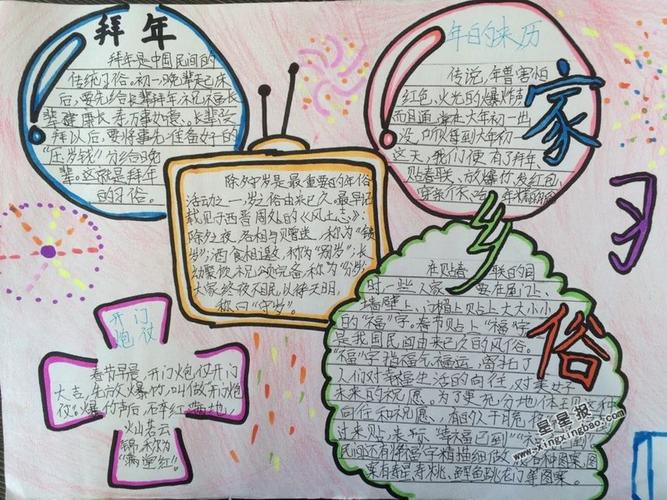 拜年
拜年是中国民间的
传统习俗。初一晚辈起床
后,要先给长辈拜年,祝愿长
辈健康长寿,万事如意。长辈受
拜以后,要将事先准备好的
“压岁钱”分给晚
辈。这就是拜年
的习俗。
年的来历
传说,年兽害怕
红色,火光和爆炸声,
而且通常在大年初一出
没,所以每到大年初一
这天,我们便有了拜年、
贴春联、放爆竹、发红包,
家乡习俗
除夕守岁是最重要的年俗
活动之一,守岁之俗由来已久。最早记
载见于西晋周处的《风土志》:
除夕之夜,各相与赠送,称为“馈
岁”;酒食相邀,称为“别岁”;长
幼聚饮,祝颂完备,称为“分岁”;
大家终夜不眠,以待天明,
称曰“守岁”。
开门
炮仗
春节早晨,开门炮仗开门
大吉,先放爆竹,叫做开门炮
仗。爆竹声后,碎红满地,
灿若云
锦,称为
“满堂红”。
在贴春联的同
时,一些人家要在屋门上、
墙壁上、门楣上贴上大大小小
的“福”字。春节贴上“福”字,
是我国民间由来已久的风俗。
“福”字指福气、福运,寄托了
人们对幸福生活的向往,对美好
未来的祝愿。为了更充分地体现这种
向往和祝愿,有的人干脆将
过来贴,表示“幸福已到”“福气已到”
民间还有将福字精描细做成各种图案,图
案有寿星、寿桃、鲤鱼跳龙门等图案。
星星报
www.xingxingbao.com